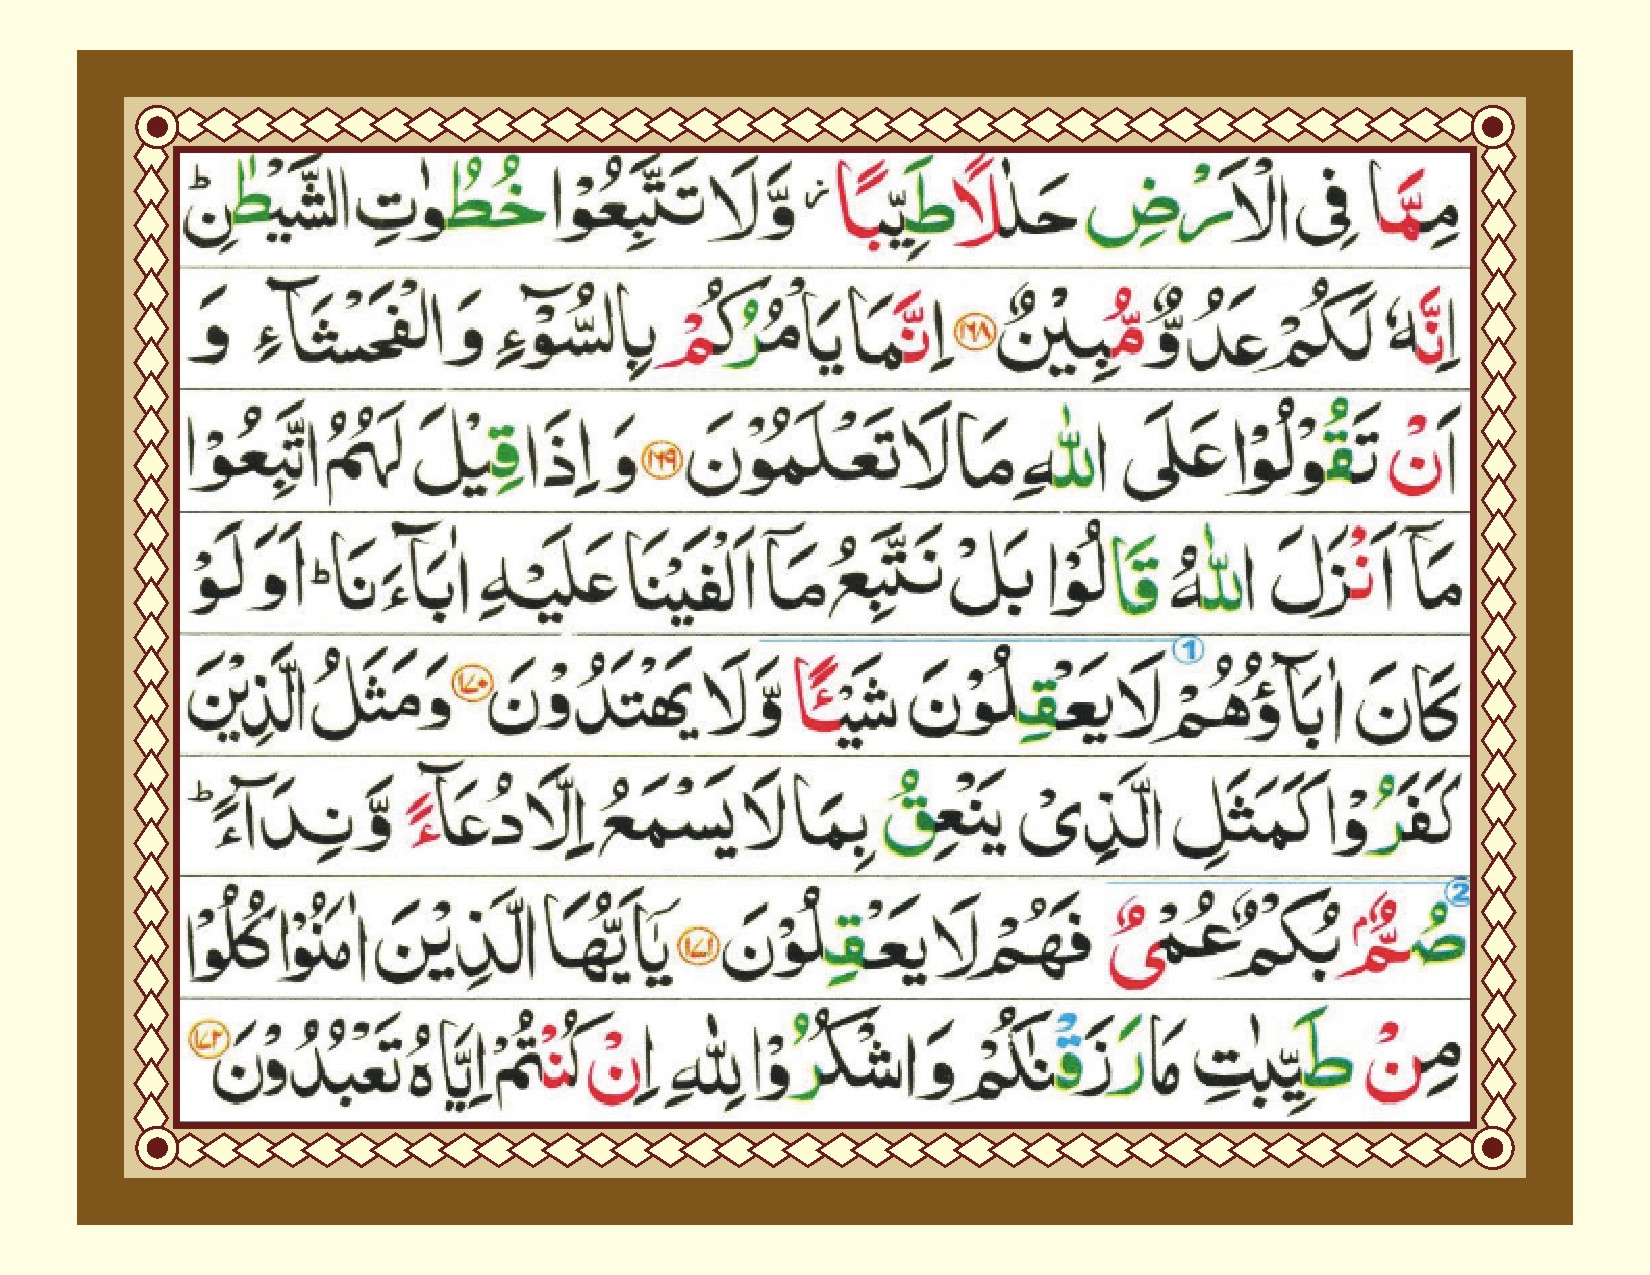 مِمَّا فِی الْاَرْضِ حَلٰلًا طَیِّبًا ۫ وَّلَا تَتَّبِعُوْا خُطُوٰتِ الشَّیْطٰنِ ؕ
اِنَّهٗ لَكُمْ عَدُوٌّ مُّبِیْنٌ ۝۱۶۸ اِنَّمَا یَاْمُرُكُمْ بِالسُّوْٓءِ وَ الْفَحْشَآءِ وَ
اَنْ تَقُوْلُوْا عَلَی اللّٰهِ مَا لَا تَعْلَمُوْنَ ۝۱۶۹ وَ اِذَا قِیْلَ لَهُمُ اتَّبِعُوْا
مَاۤ اَنْزَلَ اللّٰهُ قَالُوْا بَلْ نَتَّبِعُ مَاۤ اَلْفَیْنَا عَلَیْهِ اٰبَآءَنَا ؕ اَوَلَوْ
1
كَانَ اٰبَآؤُهُمْ لَا یَعْقِلُوْنَ شَیْـًٔا وَّلَا یَهْتَدُوْنَ ۝۱۷۰ وَمَثَلُ الَّذِیْنَ
كَفَرُوْا كَمَثَلِ الَّذِیْ یَنْعِقُ بِمَا لَا یَسْمَعُ اِلَّا دُعَآءً وَّ نِدَآءً ؕ
2
صُمٌّۢ بُكْمٌ عُمْیٌ فَهُمْ لَا یَعْقِلُوْنَ ۝۱۷۱ یٰۤاَیُّهَا الَّذِیْنَ اٰمَنُوْا كُلُوْا
مِنْ طَیِّبٰتِ مَا رَزَقْنٰكُمْ وَ اشْكُرُوْا لِلّٰهِ اِنْ كُنْتُمْ اِیَّاهُ تَعْبُدُوْنَ ۝۱۷۲